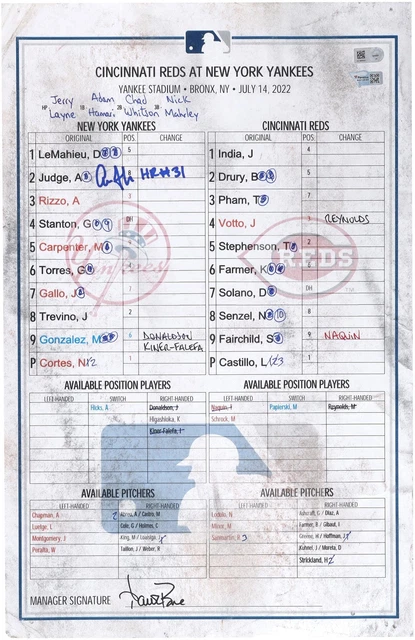 CINCINNATI REDS AT NEW YORK YANKEES
YANKEE STADIUM • BRONX, NY • JULY 14, 2022
Jerry Adam Chad Nick
HP Layne 1B Hamari 2B Whitson 3B Mahrley
NEW YORK YANKEES
ORIGINAL POS. CHANGE
1 LeMahieu, D 5
2 Judge, A HR#31
3 Rizzo, A
4 Stanton, G DH
5 Carpenter, M
6 Torres, G
7 Gallo, J
8 Trevino, J 2
9 Gonzalez, M 6 DONALDSON
KINER-FALEFA
P Cortes, N 1
CINCINNATI REDS
ORIGINAL POS. CHANGE
1 India, J 4
2 Drury, B 5
3 Pham, T 7
4 Votto, J 3 REYNOLDS
5 Stephenson, T 2
6 Farmer, K
7 Solano, D DH
8 Senzel, N
9 Fairchild, S 9 NAQUIN
P Castillo, L 1
AVAILABLE POSITION PLAYERS
LEFT-HANDED SWITCH RIGHT-HANDED
Hicks, A Donaldson, J
Higashioka, K
Kiner-Falefa, I
AVAILABLE POSITION PLAYERS
LEFT-HANDED SWITCH RIGHT-HANDED
Naquin, T Papierski, M Reynolds, M
Schrock, M
REDS
AVAILABLE PITCHERS
LEFT-HANDED RIGHT-HANDED
Chapman, A Abreu, A / Castro, M
Luetge, L Cole, G / Holmes, C
Montgomery, J King, M / Loaisiga, J
Peralta, W Taillon, J / Weber, R
AVAILABLE PITCHERS
LEFT-HANDED RIGHT-HANDED
Lodolo, N Ashcraft, G / Diaz, A
Minor, M Farmer, B / Gibaut, I
Sanmartin, R Greene, H / Hoffman, J
Kuhnel, J / Moreta, D
Strickland, H
MANAGER SIGNATURE